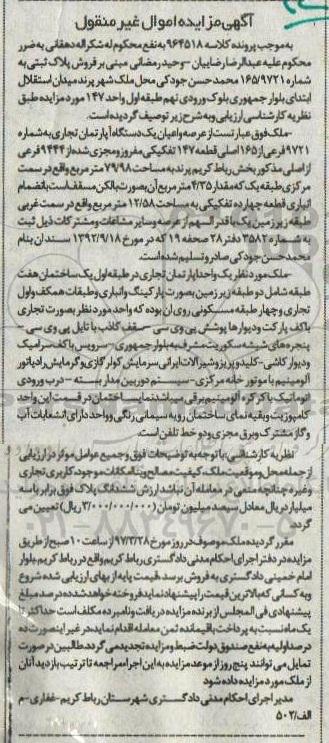 آگهی مزایده اموال غیر منقول
به موجب پرونده کلاسه ۹۶۴۵۱۸ به نفع محکوم له شکراله دهقانی به ضرر
محکوم علیه عبدالرضا رضاییان – وحید رمضانی مبنی بر فروش پلاک ثبتی به
شماره ۱۶۵/۹۷۲۱ محمدحسن جودکی محل ملک شهر پرند میدان استقلال
ابتدای بلوار جمهوری بلوک ورودی نهم طبقه اول واحد ۱۴۷ مورد مزایده طبق
نظریه کارشناسی ارزیابی و به شرح زیر توصیف گردیده است.
-ملک فوق عبارتست از عرصه و اعیان یک دستگاه آپارتمان تجاری به شماره
۹۷۲۱ فرعی از ۱۶۵ اصلی قطعه ۱۴۷ تفکیکی مفروز و مجزی شده از ۹۴۴۴ فرعی
از اصلی مذکور بخش رباط کریم پرند به مساحت ۷۹/۹۸ متر مربع واقع در سمت
مرکزی طبقه یک که مقدار ۴/۳۵ متر مربع آن بصورت بالکن مسقف است بانضمام
انباری قطعه چهارده تفکیکی به مساحت ۱۲/۵۸ متر مربع واقع در سمت غربی
طبقه زیرزمین یک با قدرالسهم از عرصه و سایر مشاعات و مشترکات ذیل ثبت
به شماره ۳۵۸۲ دفتر ۲۸ صفحه ۱۹ که در مورخ ۱۳۹۲/۹/۱۸ سند آن بنام
محمدحسن جودکی صادر و تسلیم شده است.
-ملک مورد نظر یک واحد آپارتمان تجاری در طبقه اول یک ساختمان هفت
طبقه شامل دو طبقه زیرزمین بصورت پارکینگ و انباری و طبقات همکف و اول
تجاری و چهار طبقه مسکونی روی آن بوده که واحد مورد نظر بصورت تجاری
با کف پارکت و دیوارها پوشش پی وی سی –سقف کاذب با تایل پی وی سی –
پنجره‌های شیشه سکوریت مشرف به بلوار جمهوری – سرویس با کف سرامیک
و دیوار کاشی-کلید و پریز و شیرآلات ایرانی سرمایش کولر گازی و گرمایش رادیاتور
آلومینیم با موتورخانه مرکزی- سیستم دوربین مدار بسته – درب ورودی
اتوماتیک با کرکره آلومینیم برقی میباشد نمای ساختمان در قسمت این واحد
کامپوزیت و بقیه نمای ساختمان رویه سیمانی رنگی و واحد دارای انشعابات آب
و گاز مشترک و برق مجزی و دو خط تلفن است.
نظریه کارشناسی: با توجه به توضیحات فوق و جمیع عوامل موثر در ارزیابی
از جمله محل و موقعیت ملک، کیفیت مصالح و بنا، امکانات موجود، کاربری تجاری
وغیره چنانچه منعی در معامله آن نباشد ارزش ششدانگ پلاک فوق برابر با سه
میلیارد ریال معادل سیصد میلیون تومان (۳/۰۰۰/۰۰۰/۰۰۰ ریال) تعیین می
گردد.
مقرر گردیده ملک موصوف در روز مورخ ۹۷/۳/۲۸ از ساعت ۱۰ صبح از طریق
مزایده در دفتر اجرای احکام مدنی دادگستری رباط کریم واقع در رباط کریم بلوار
امام خمینی دادگستری به فروش برسد قیمت پایه از بهای ارزیابی شده شروع
و به کسانی که بالاترین قیمت را پیشنهاد نماید فروخته خواهد شد ده درصد مبلغ
پیشنهادی فی المجلس از برنده مزایده دریافت و نامبرده مکلف است حداکثر تا
یک ماه نسبت به پرداخت باقیمانده ثمن معامله اقدام نماید، در غیر اینصورت ده
درصد اولیه به نفع صندوق دولت ضبط و مزایده تجدید می گردد. طالبین در صورت
تمایل می توانند پنج روز از موعد مزایده به این اجرا مراجعه تا ترتیب بازدید آنان
از ملک مورد مزایده داده شود
مدیر اجرای احکام مدنی دادگستری شهرستان رباط کریم-غفاری-م
الف/۵۰۲
۰۲۱-۸۸۳۴۹۶۷۰-۵